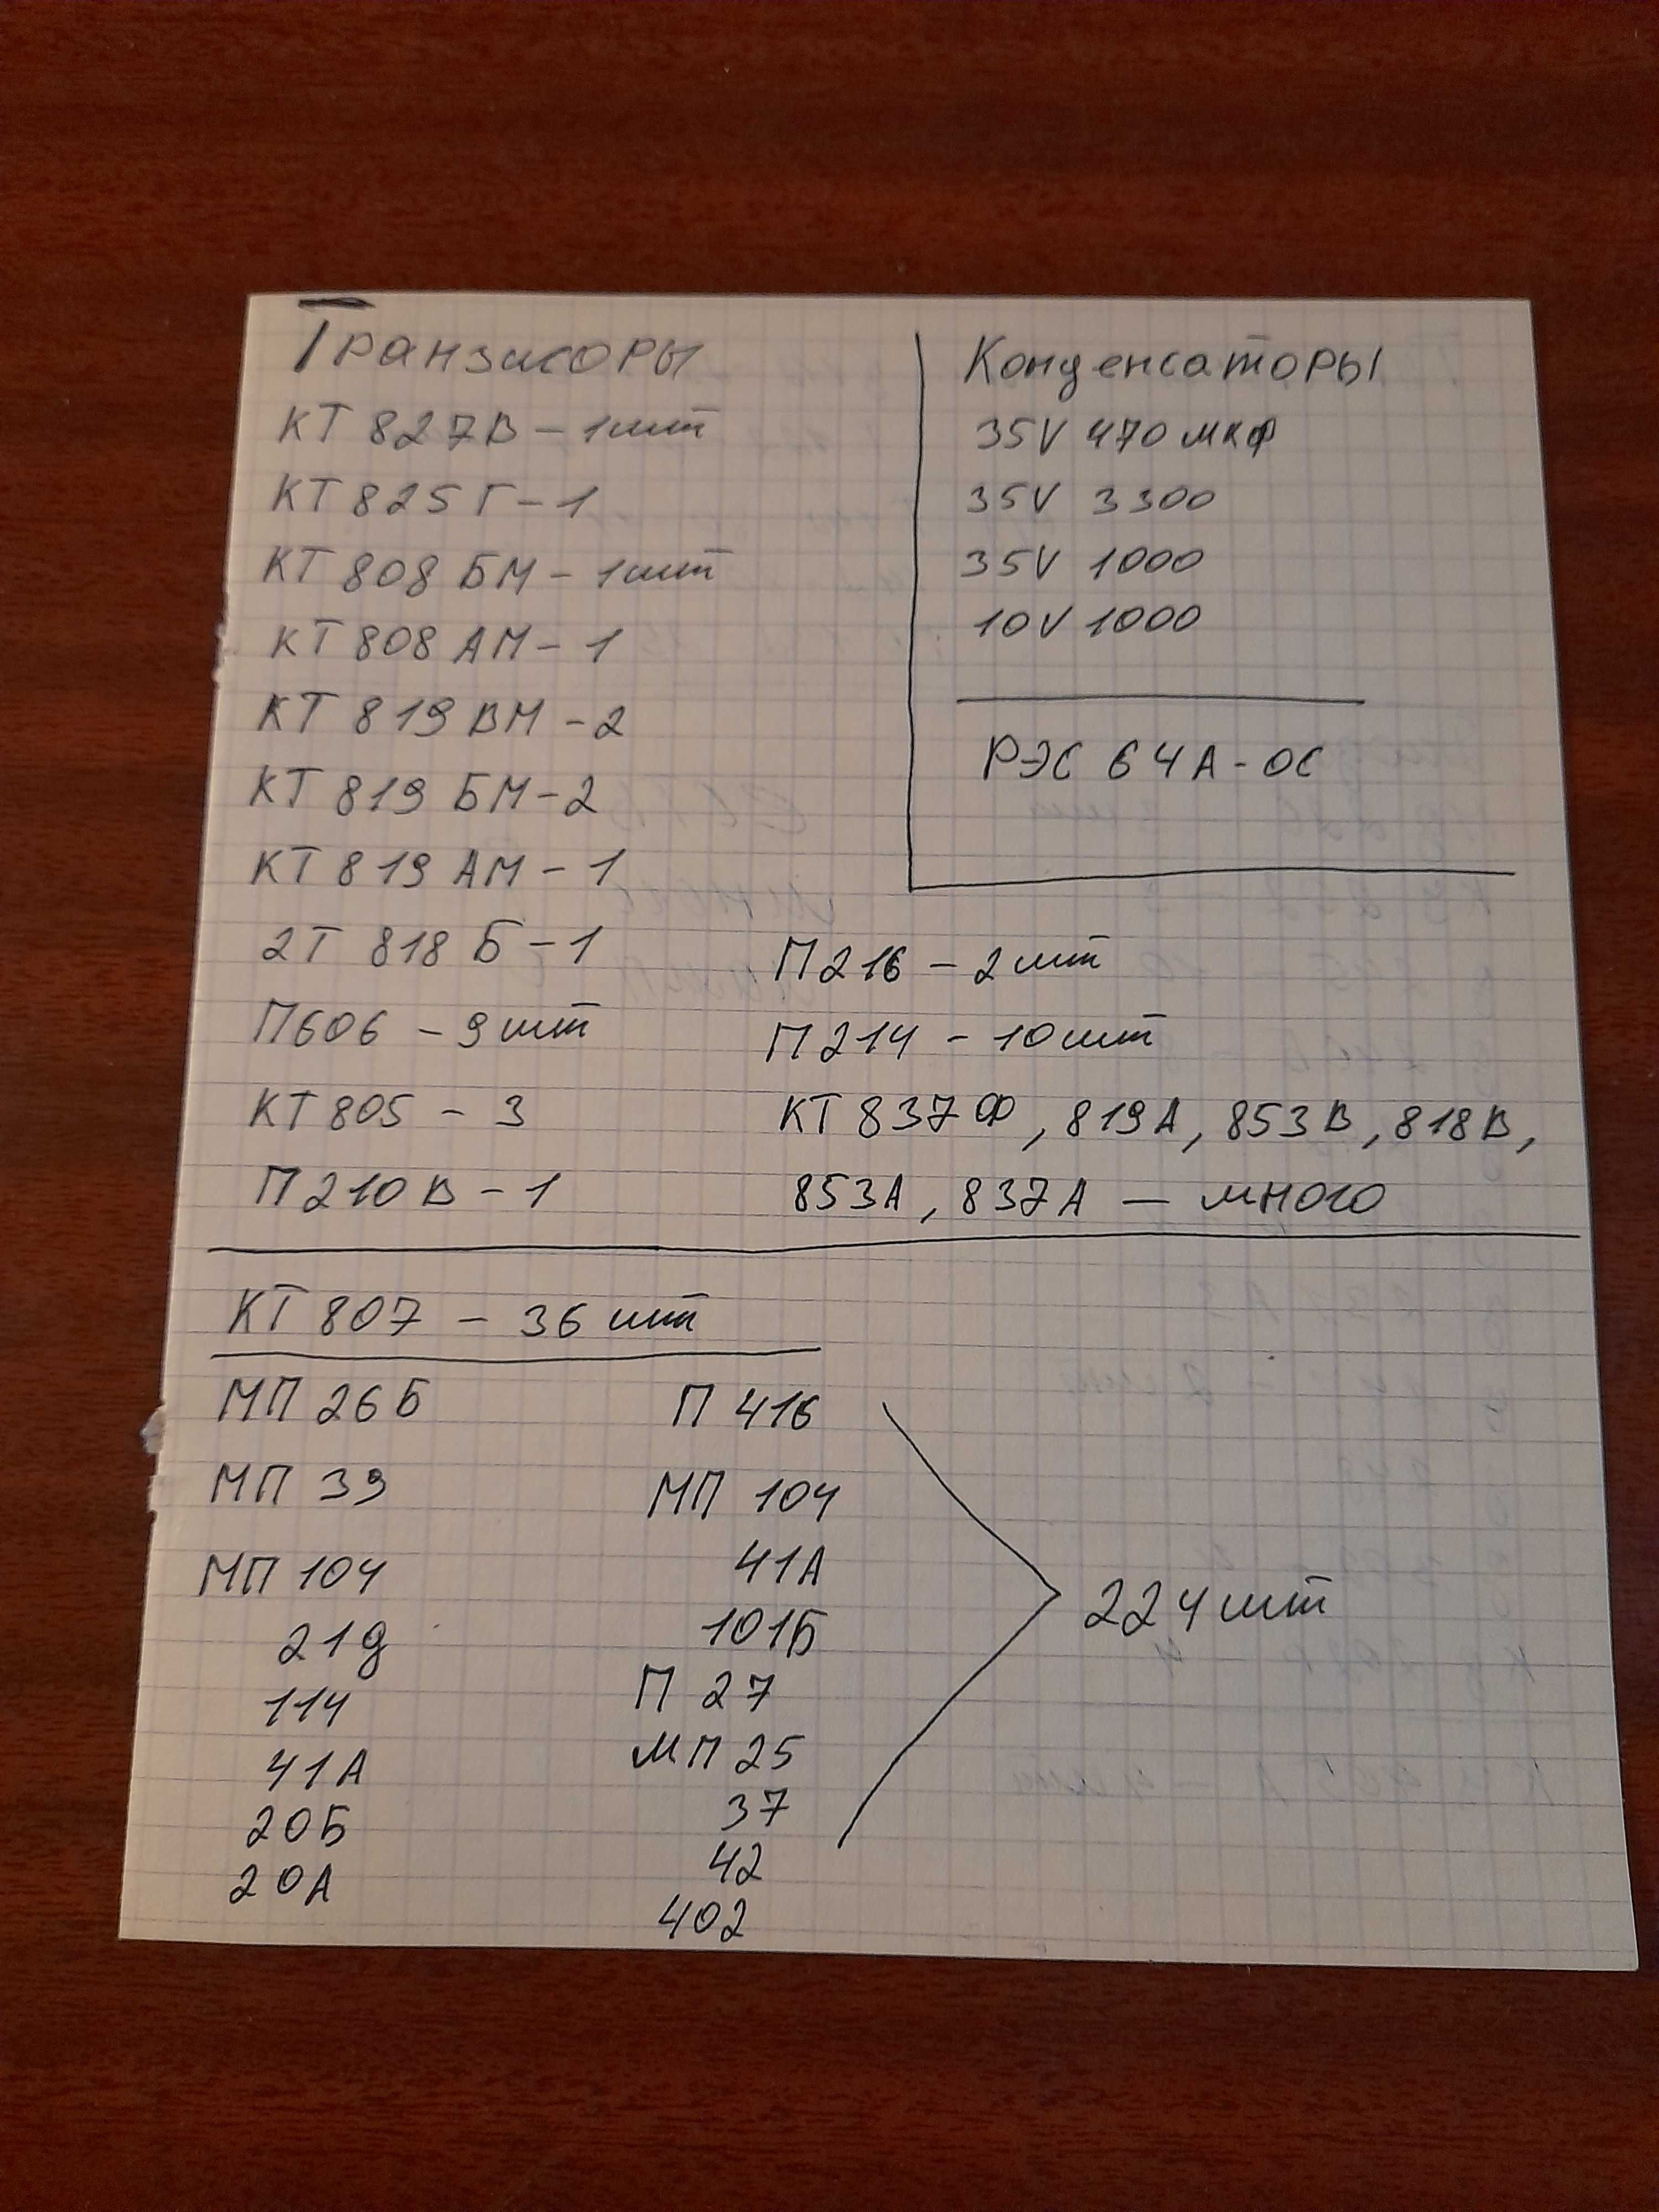 Транзисоры
КТ 827В - 1шт
КТ 825 Г - 1
КТ 808 БМ - 1шт
КТ 808 АМ - 1
КТ 819 ВМ - 2
КТ 819 БМ - 2
КТ 819 АМ - 1
2Т 818 Б - 1
П606 - 9 шт
КТ 805 - 3
П 210 В - 1
Конденсаторы
35V 470 мкф
35V 3300
35V 1000
10V 1000
РЭС 64А - ОС
П216 - 2 шт
П 214 - 10 шт
КТ 837 Ф, 819А, 853В, 818В,
853А, 837А — много
КТ 807 - 36 шт
МП 26 Б
МП 39
МП 104
21д
114
41А
20Б
20А
П 416
МП 104
41А
101Б
П 27
МП 25
37
42
402
224 шт